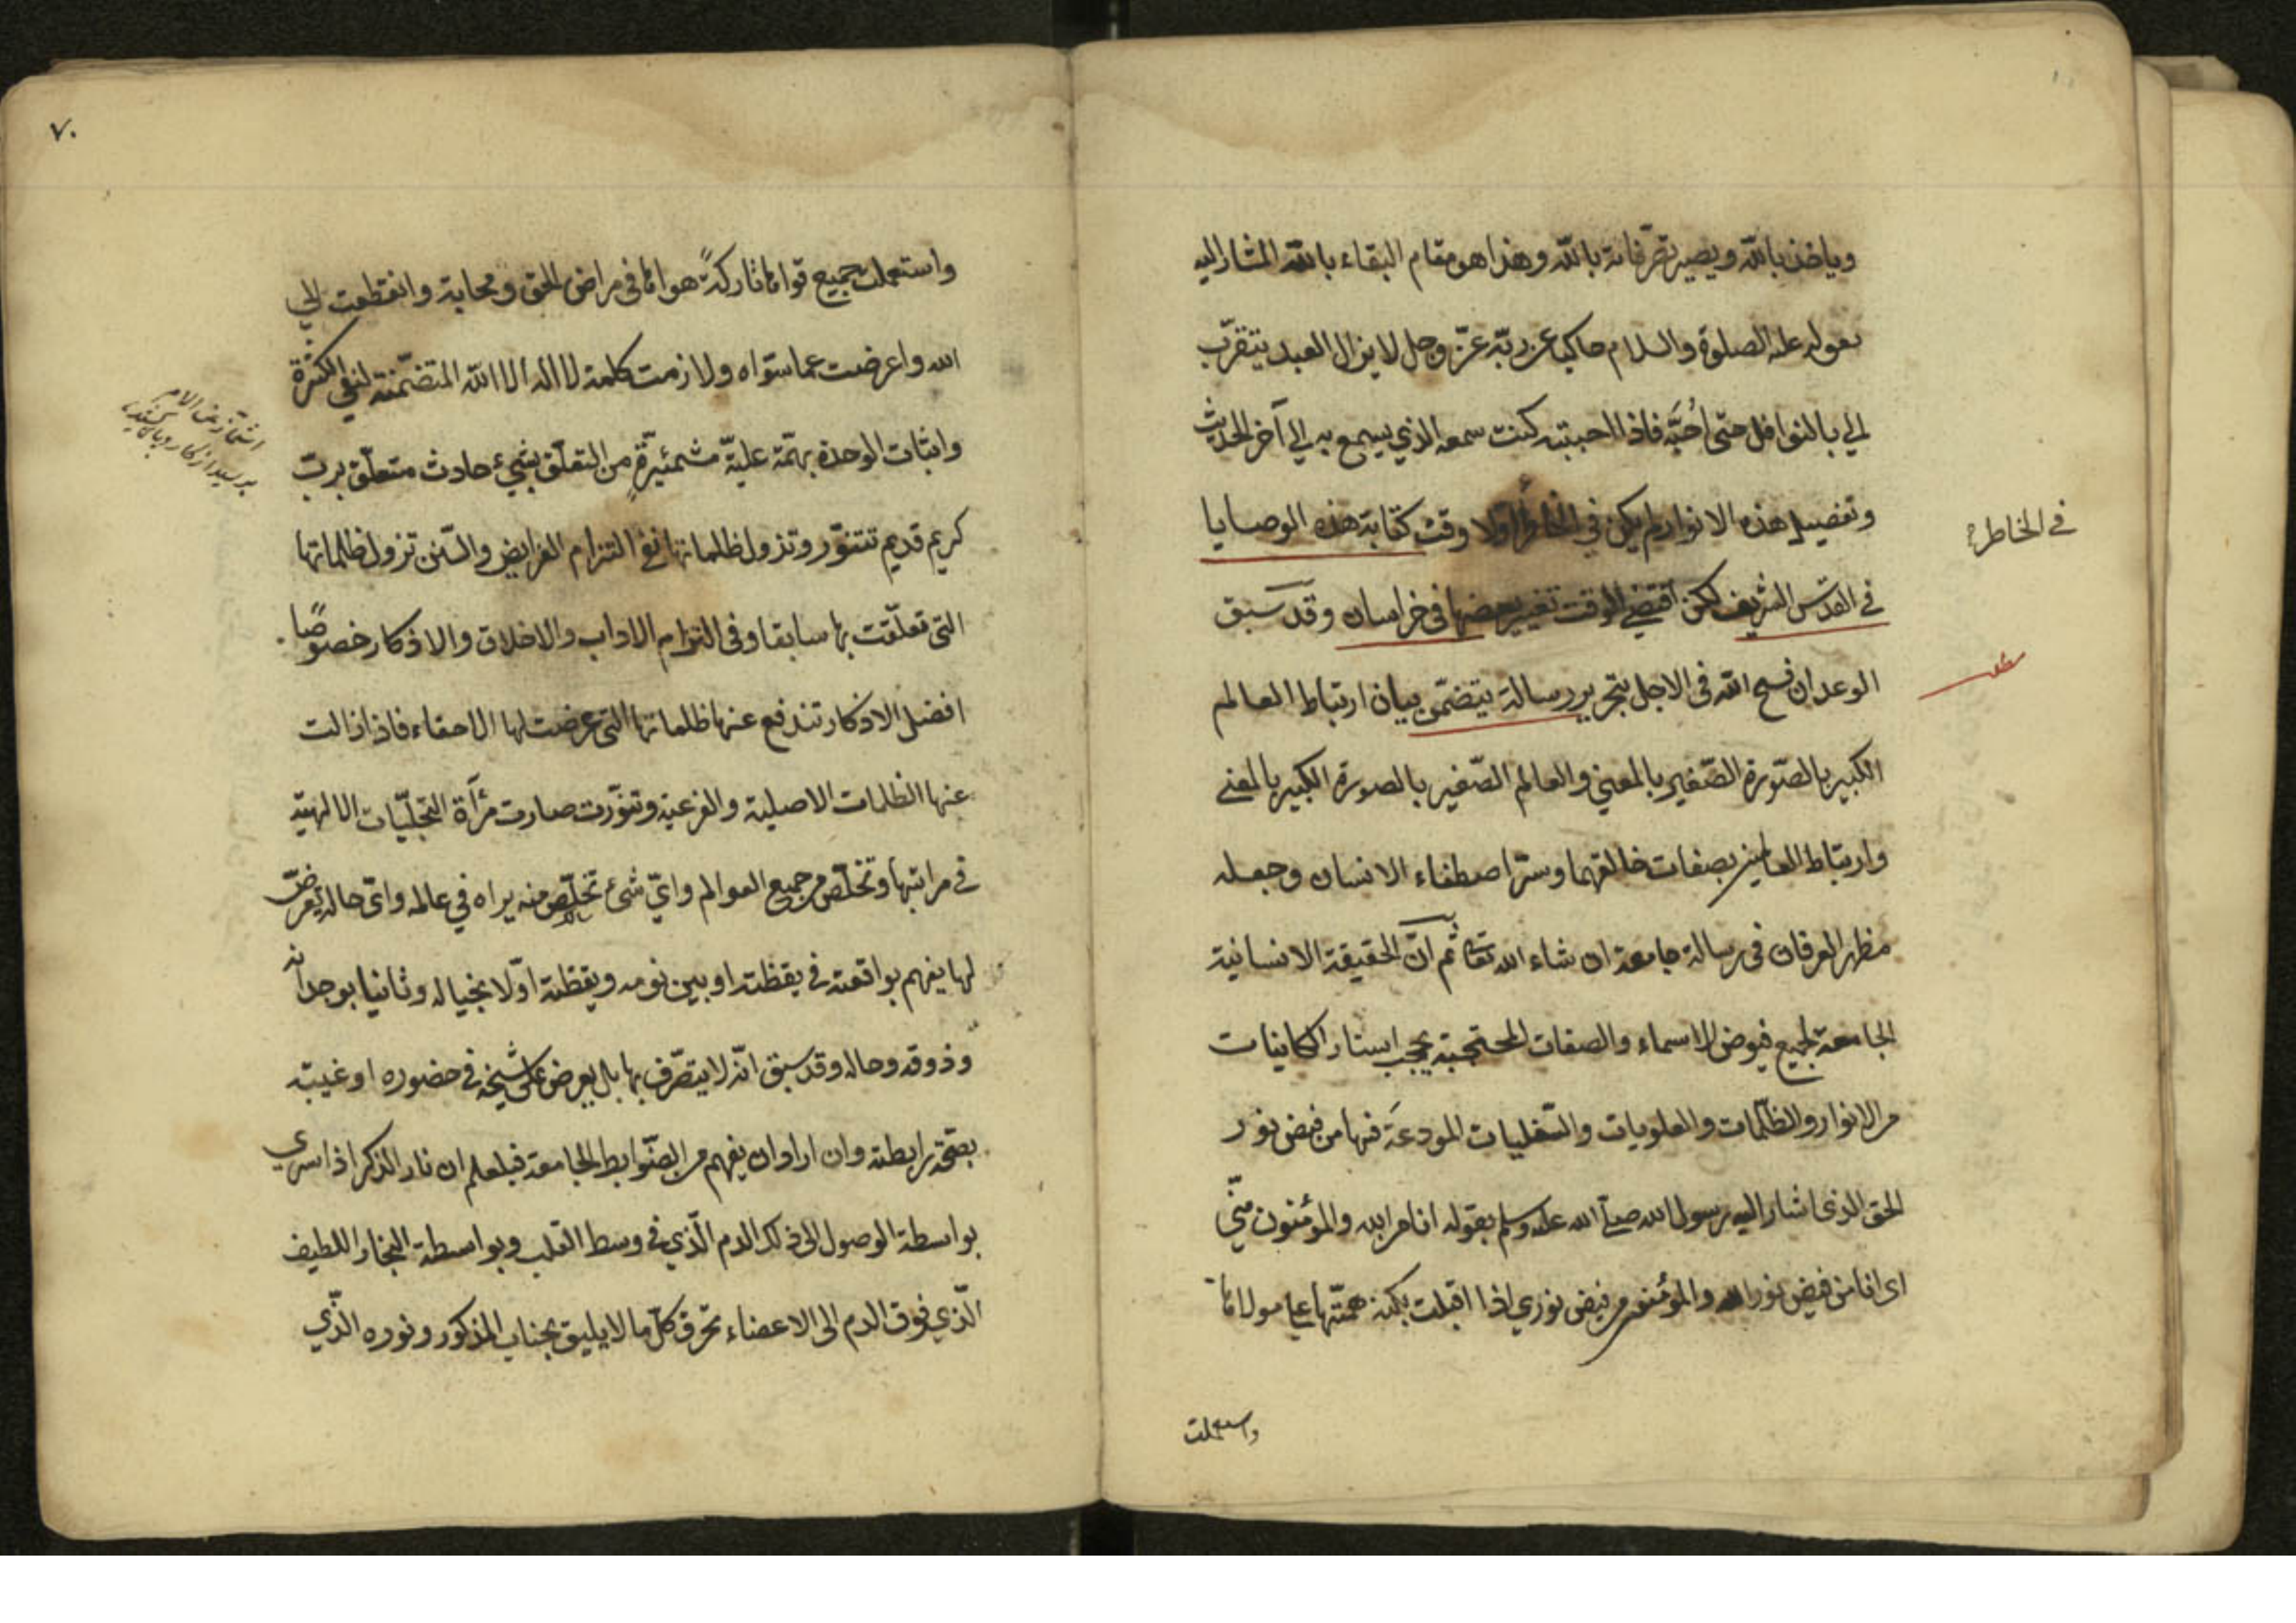 وياخذ بالله ويصير تصرفاته بالله وهذا هو مقام البقاء بالله المشار اليه
بقوله عليه الصلوة والسلام حاكيا عن ربّه عزّ وجل لا يزال العبد يتقرّب
الي بالنوافل حتى اُحبَّه فاذا احببته كنت سمعه الذي يسمع به الي آخر الحديث
وتفصيل هذه الانوار لم يكن في الخاطر اولا وقت كتابة هذه الوصايا
في الخاطر
في القدس الشريف لكن اقتضي الوقت تغيير بعضها في خراسان وقد سبق
الوعد ان فسح الله في الاجل بتحرير رسالة يتضمّن بيان ارتباط العالم
الكبير بالصّورة الصّغير بالمعني والعالم الصّغير بالصورة الكبير بالمعني
وارتباط العالمين بصفات خالقهما وسرّ اصطفاء الانسان وجعله
مظهر العرفان في رسالة جامعة ان شاء الله تعا ثم انّ الحقيقة الانسانية
الجامعة لجميع فيوض الاسماء والصفات المحتجبة بحجب استار الكاينات
من الانوار والظّلمات والعلويات والسّفليات المودعَة فيها من فيض نور
الحق الذي اشار اليه رسول الله صلي الله عليه وسلم بقوله انا من الله والمؤمنون منّي
اى انا من فيض نور الله والمؤمنون من فيض نوري اذا اقبلت بكنه همّتها علي مولاها
واستعملت
٧٠
واستعملت جميع قواها تاركةً هواها في مراض الحق ومحابه وانقطعت الي
الله واعرضت عما سواه ولازمت كلمة لا اله الا الله المتضمّنة لنفي الكثرة
واثبات الوحدة بهمّة عليّة مشمئزّةٍ من التعلّق بشيء حادث متعلّق بربّ
كريم قديم تتنوّر وتزول ظلماتها ففي التزام الفرايض والسّنن تزول ظلماتها
التي تعلّقت بها سابقا وفي التزام الاداب والاخلاق والاذكار خصوصًا
افضل الاذكار تندفع عنها ظلماتها التي عرضت لها لاحقاء فاذا زالت
عنها الظلمات الاصلية والفرعية وتنوّرت صارت مرآة التجلّيات الالهيّة
في مراتبها وتخلّص من جميع العوالم وايّ شئ تخلّص منه يراه في عالمه واىّ حالة تعرضّ
لها يفهم بواقعته في يقظته او بين نومه ويقظته اوّلا بخياله وثانيا بوجدانه
وذوقه وحاله وقد سبق انّه لا يتصّرف بها بل يعرض على شيخه في حضوره او غيبته
بصحّة رابطته وان اراد ان يفهم من الضّوابط الجامعة فليعلم ان نار الذكر اذا سري
بواسطة الوصول الى ذلك الدم الّذي في وسط القلب وبواسطة البخار اللطيف
الّذي فوق الدم الى الاعضاء تحرق كلّ ما لا يليق بجناب المذكور ونوره الّذي